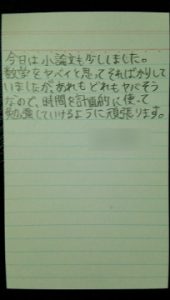 今日は小論文も少ししました。
数学をヤバイと思ってそればかりして
いましたが、あれもどれもヤバそう
なので、時間を計画的に使って
勉強していけるように頑張ります。